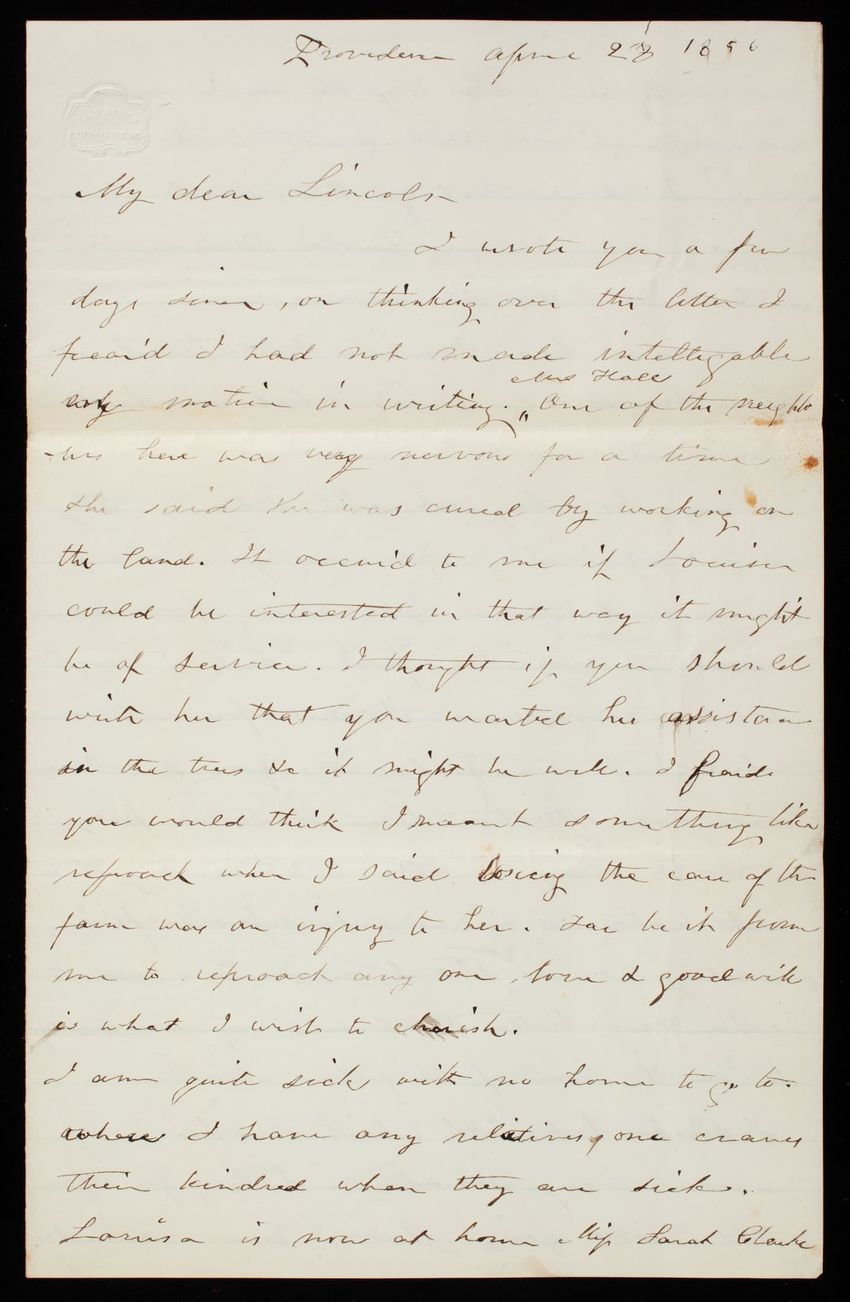 Providence April 28 1856
My dear Lincoln
I wrote you a few
days since, on thinking over the letter I
feard I had not made intelligable
my motive in writing. Mrs Hall One of the neighb
-urs here was very nervous for a time
she said she was cured by working on
the land. It occurd to me if Louisa
could be interested in that way it might
be of service. I thought if you should
with her that you wanted her assistance
in the trees &c it might be well. I fraid
you would think I meant something like
reproach when I said losing the care of the
farm was an injury to her. Far be it from
me to reproach any one, love & good will
is what I wish to cherish.
I am quite sick with no home to go to.
where I have any relatives, one craves
their kindred when they are sick.
Louisa is now at home Miss Sarah Clarke